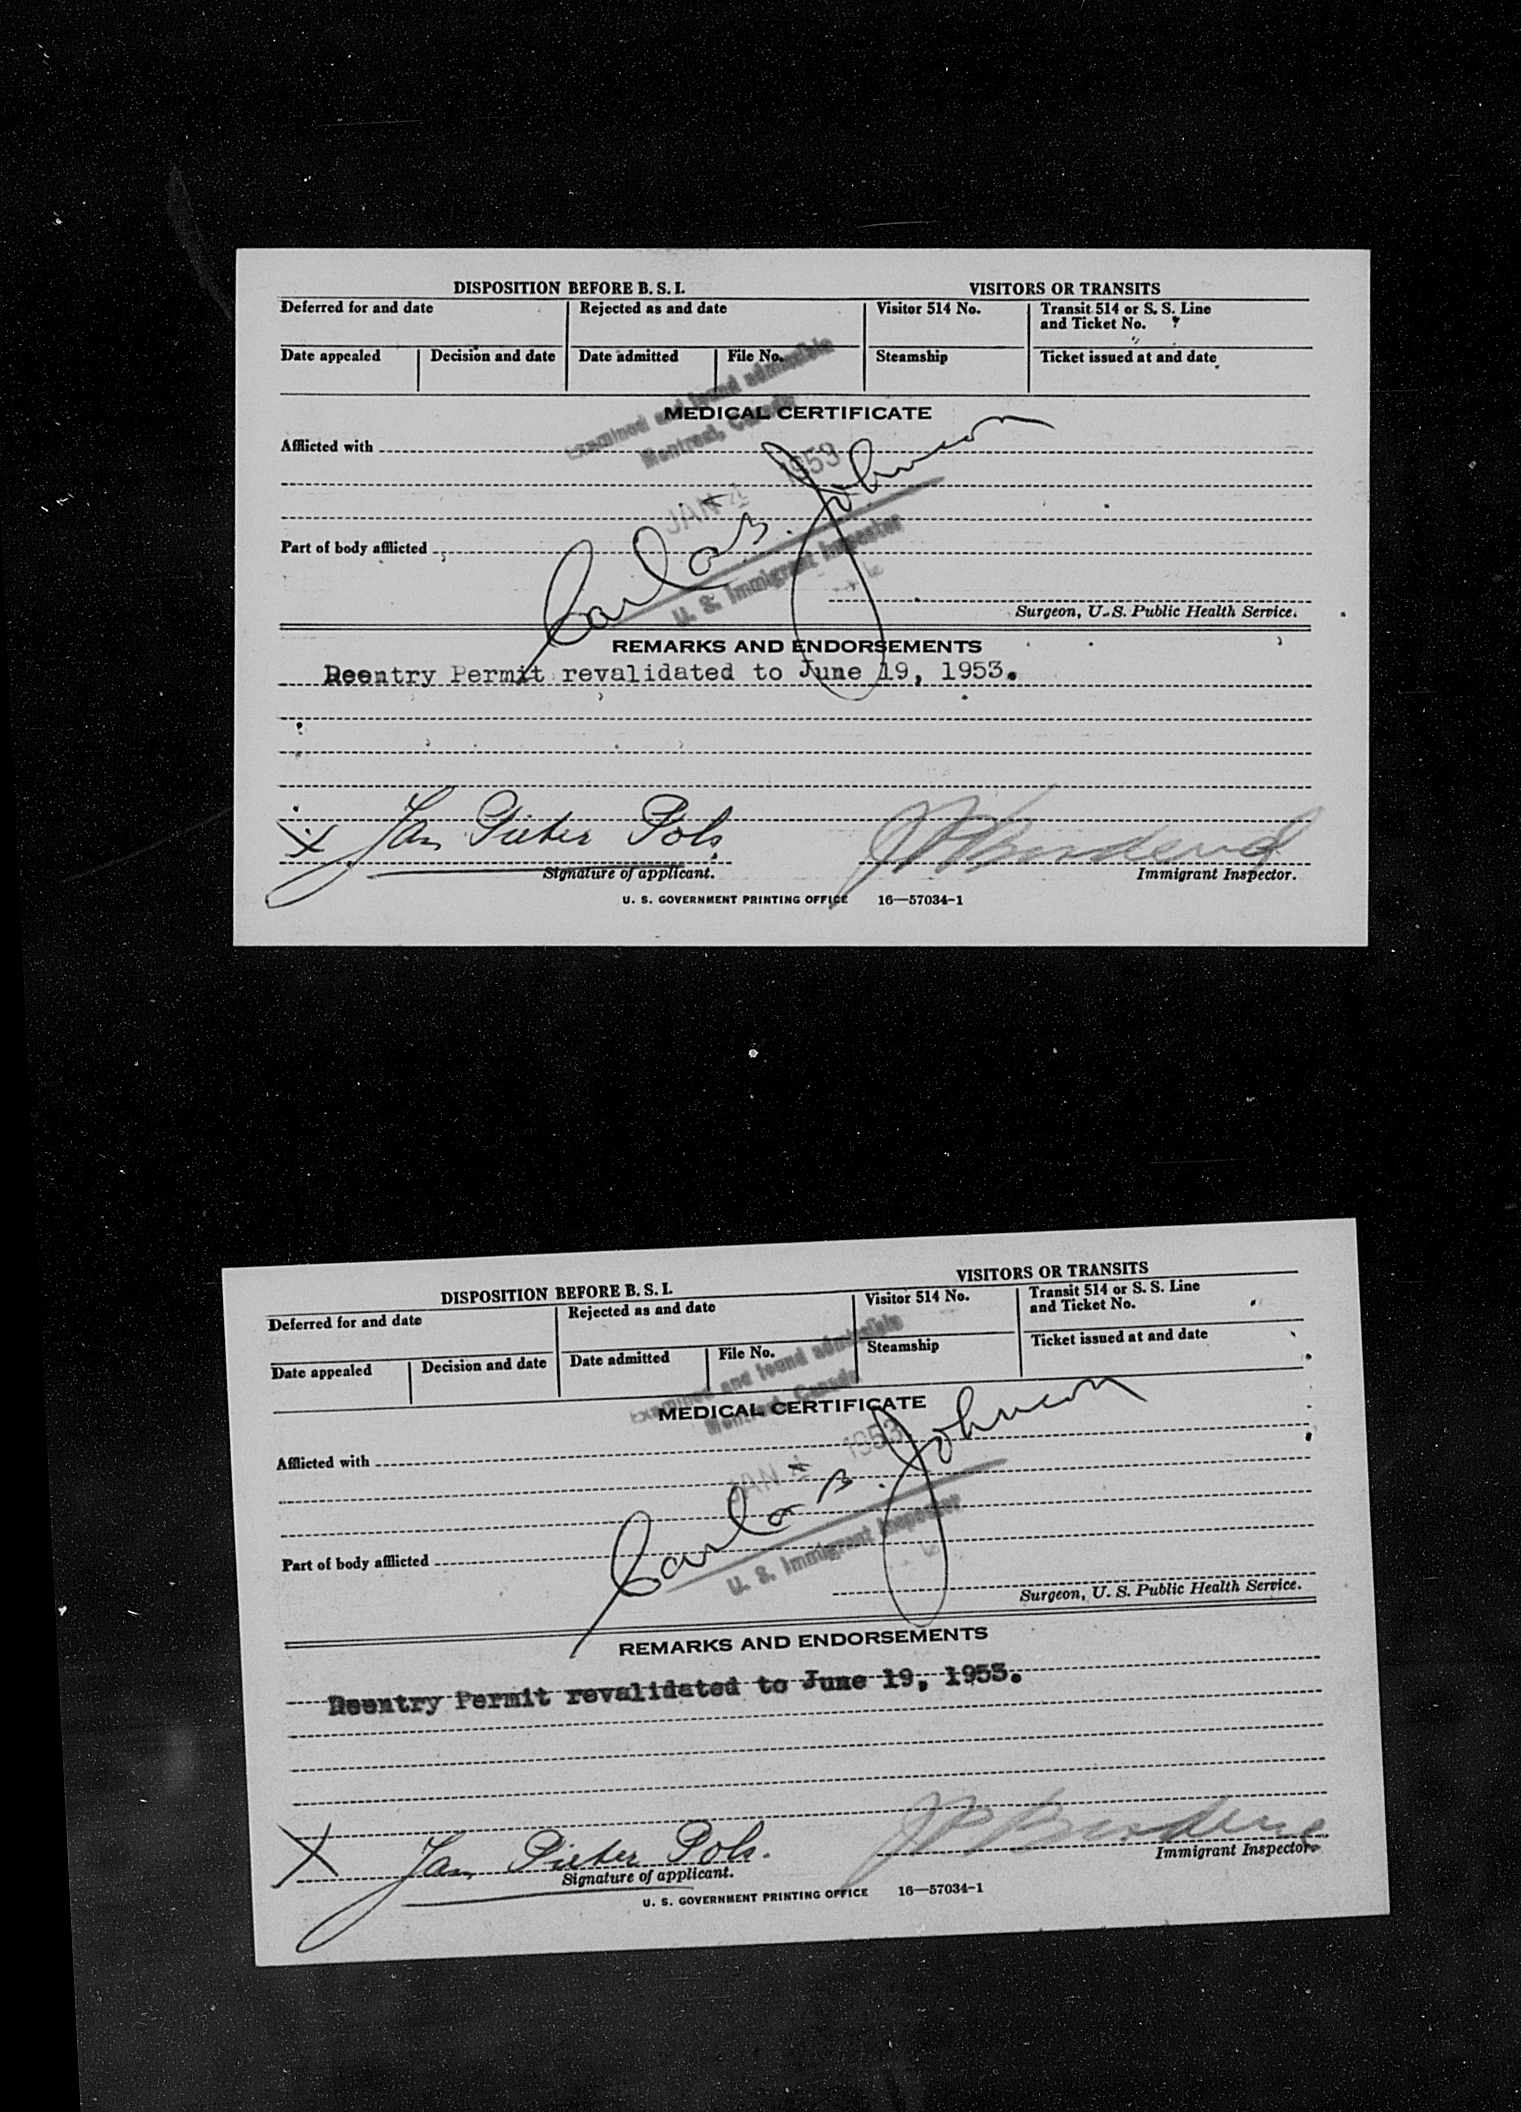 DISPOSITION BEFORE B. S. I.
VISITORS OR TRANSITS
Deferred for and date
Rejected as and date
Visitor 514 No.
Transit 514 or S. S. Line
and Ticket No.
Date appealed
Decision and date
Date admitted
File No.
Steamship
Ticket issued at and date
Examined and found admissible
Montreal, Canada
MEDICAL CERTIFICATE
Afflicted with
JAN 4 1953
Carl B. Johnson
Part of body afflicted
U. S. Immigrant Inspector
Surgeon, U. S. Public Health Service.
REMARKS AND ENDORSEMENTS
Reentry Permit revalidated to June 19, 1953.
X Jan Pieter Pols.
Signature of applicant.
Immigrant Inspector.
U. S. GOVERNMENT PRINTING OFFICE 16—57034-1
DISPOSITION BEFORE B. S. I.
VISITORS OR TRANSITS
Deferred for and date
Rejected as and date
Visitor 514 No.
Transit 514 or S. S. Line
and Ticket No.
Date appealed
Decision and date
Date admitted
File No.
Steamship
Ticket issued at and date
Examined and found admissible
Montreal, Canada
MEDICAL CERTIFICATE
Afflicted with
JAN 4 1953
Carl B. Johnson
Part of body afflicted
U. S. Immigrant Inspector
Surgeon, U. S. Public Health Service.
REMARKS AND ENDORSEMENTS
Reentry Permit revalidated to June 19, 1953.
X Jan Pieter Pols.
Signature of applicant.
Immigrant Inspector.
U. S. GOVERNMENT PRINTING OFFICE 16—57034-1